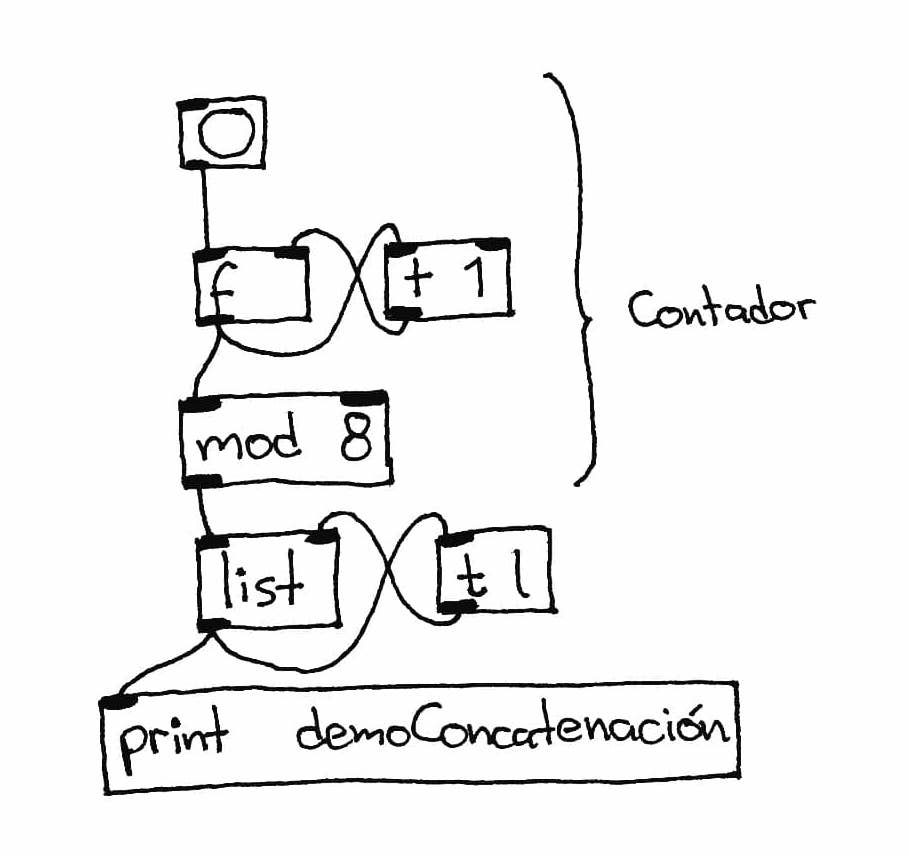 f
+ 1
Contador
mod 8
list
t l
print demoConcatenación